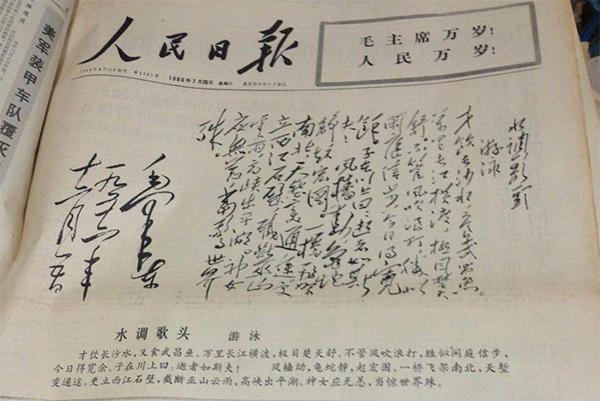 美军装甲车队覆灭
人民日報
1966年7月26日 星期二
毛主席万岁!
人民万岁!
水调歌头
游泳
才饮长沙水又食武昌鱼
万里长江横渡极目楚天
舒不管风吹浪打胜似
闲庭信步今日得宽
馀子在川上曰逝者如斯
夫风樯动龟蛇
静起宏图一桥飞架
南北天堑变通途更
立西江石壁截断巫山
云雨高峡出平湖神女
应无恙当惊世界
殊
毛泽东
一九五六年
十二月五日
水调歌头 游泳
才饮长沙水，又食武昌鱼。万里长江横渡，极目楚天舒。不管风吹浪打，胜似闲庭信步，
今日得宽余。子在川上曰：逝者如斯夫！ 风樯动，龟蛇静，起宏图。一桥飞架南北，天堑
变通途。更立西江石壁，截断巫山云雨，高峡出平湖。神女应无恙，当惊世界殊。